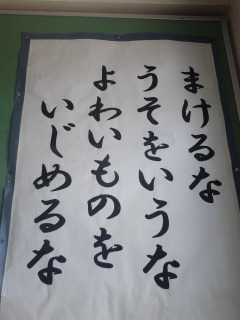 まけるな
うそをいうな
よわいものを
いじめるな